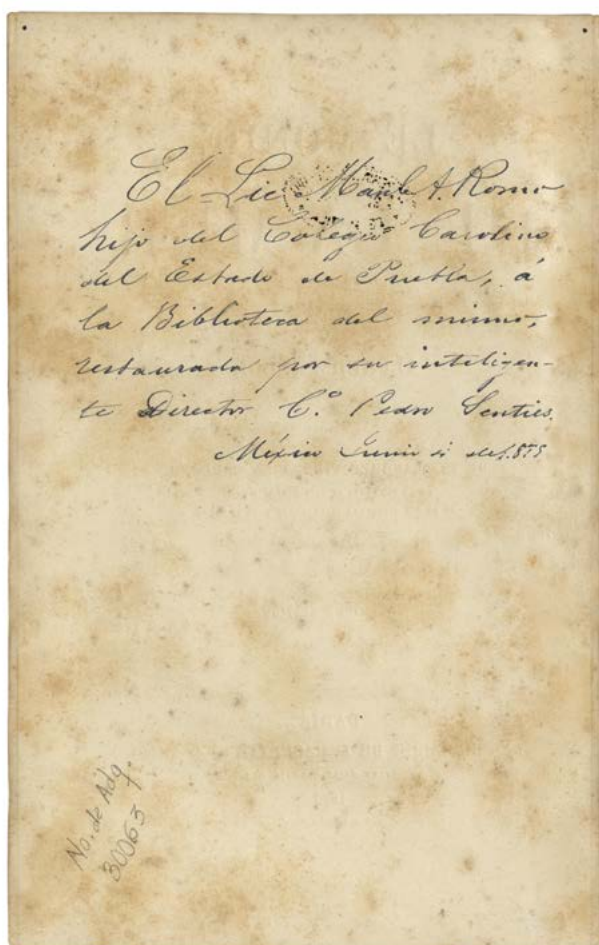 El Lic. Manl. A. Romo
hijo del Colegio Carolino
del Estado de Puebla, á
la Biblioteca del mismo,
restaurada por su inteligen-
te Director C.º Pedro Senties.
México Junio de
No. de Adq.
30063